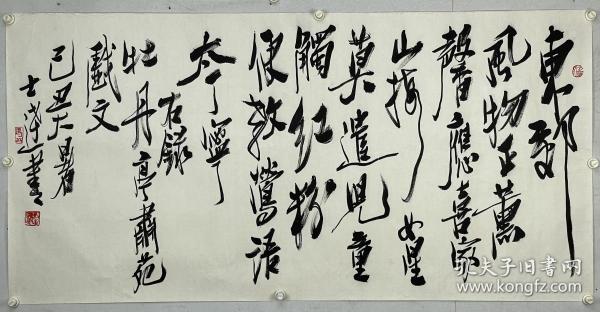 東郊
風物正薰
馨應喜家
山接女星
莫遣兒童
觸紅粉
便教鶯語
太丁寧
右錄
牡丹亭肅苑
戲文
己丑大暑
孔夫子旧书网
www.kongfz.com